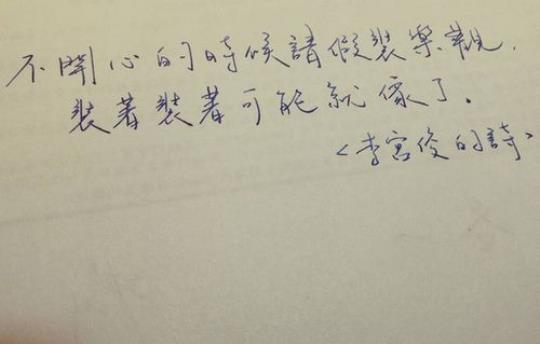 不開心的時候請假裝樂觀.
裝著裝著可能就像了。
<李宮俊的詩>